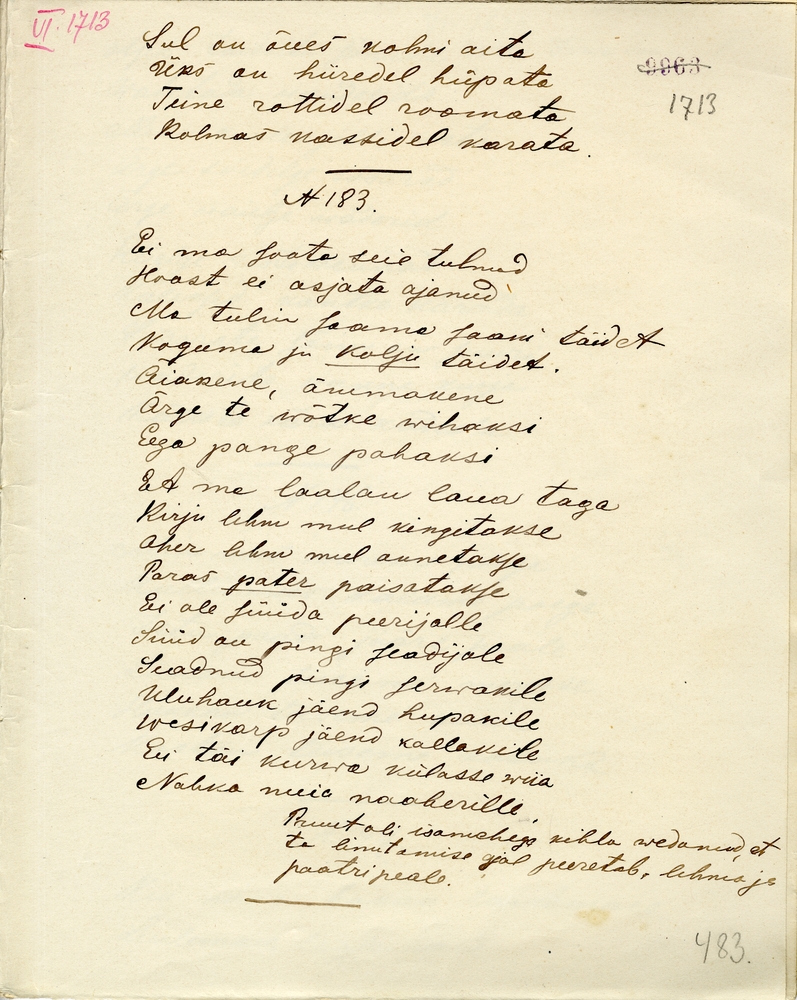 VI. 1713
Sul on õues kolmi aita
Üks on hiiredel hüpata
9963
Teine rottidel roomata
1713
Kolmas kassidel karata.
N 183.
Ei ma joota seie tulnud
Hoost ei asjata ajanud
Ma tulin saama saani täidet
Koguma ju kolju täidet.
Äiakene, ämmakene
Ärge te wõtke wihaksi
Ega pange pahaksi
Et ma laalan laua taga
Kirju lehm mul kingitakse
Aher lehm mul annetakse
Paras pater paisatakse
Ei ole süüda peerijalle
Süüd on pingi seadijale
Seadnud pingi serwakile
Uluhauk jäend hupakile
Wesikarp jäend kallakile
Ei täi kurwa külasse wiia
Nahka muia naaberille.
Pruut oli isamehega kihla wedanud, et
ta linutamise ajal peeretab, lehma ja
paatri peale.
483.